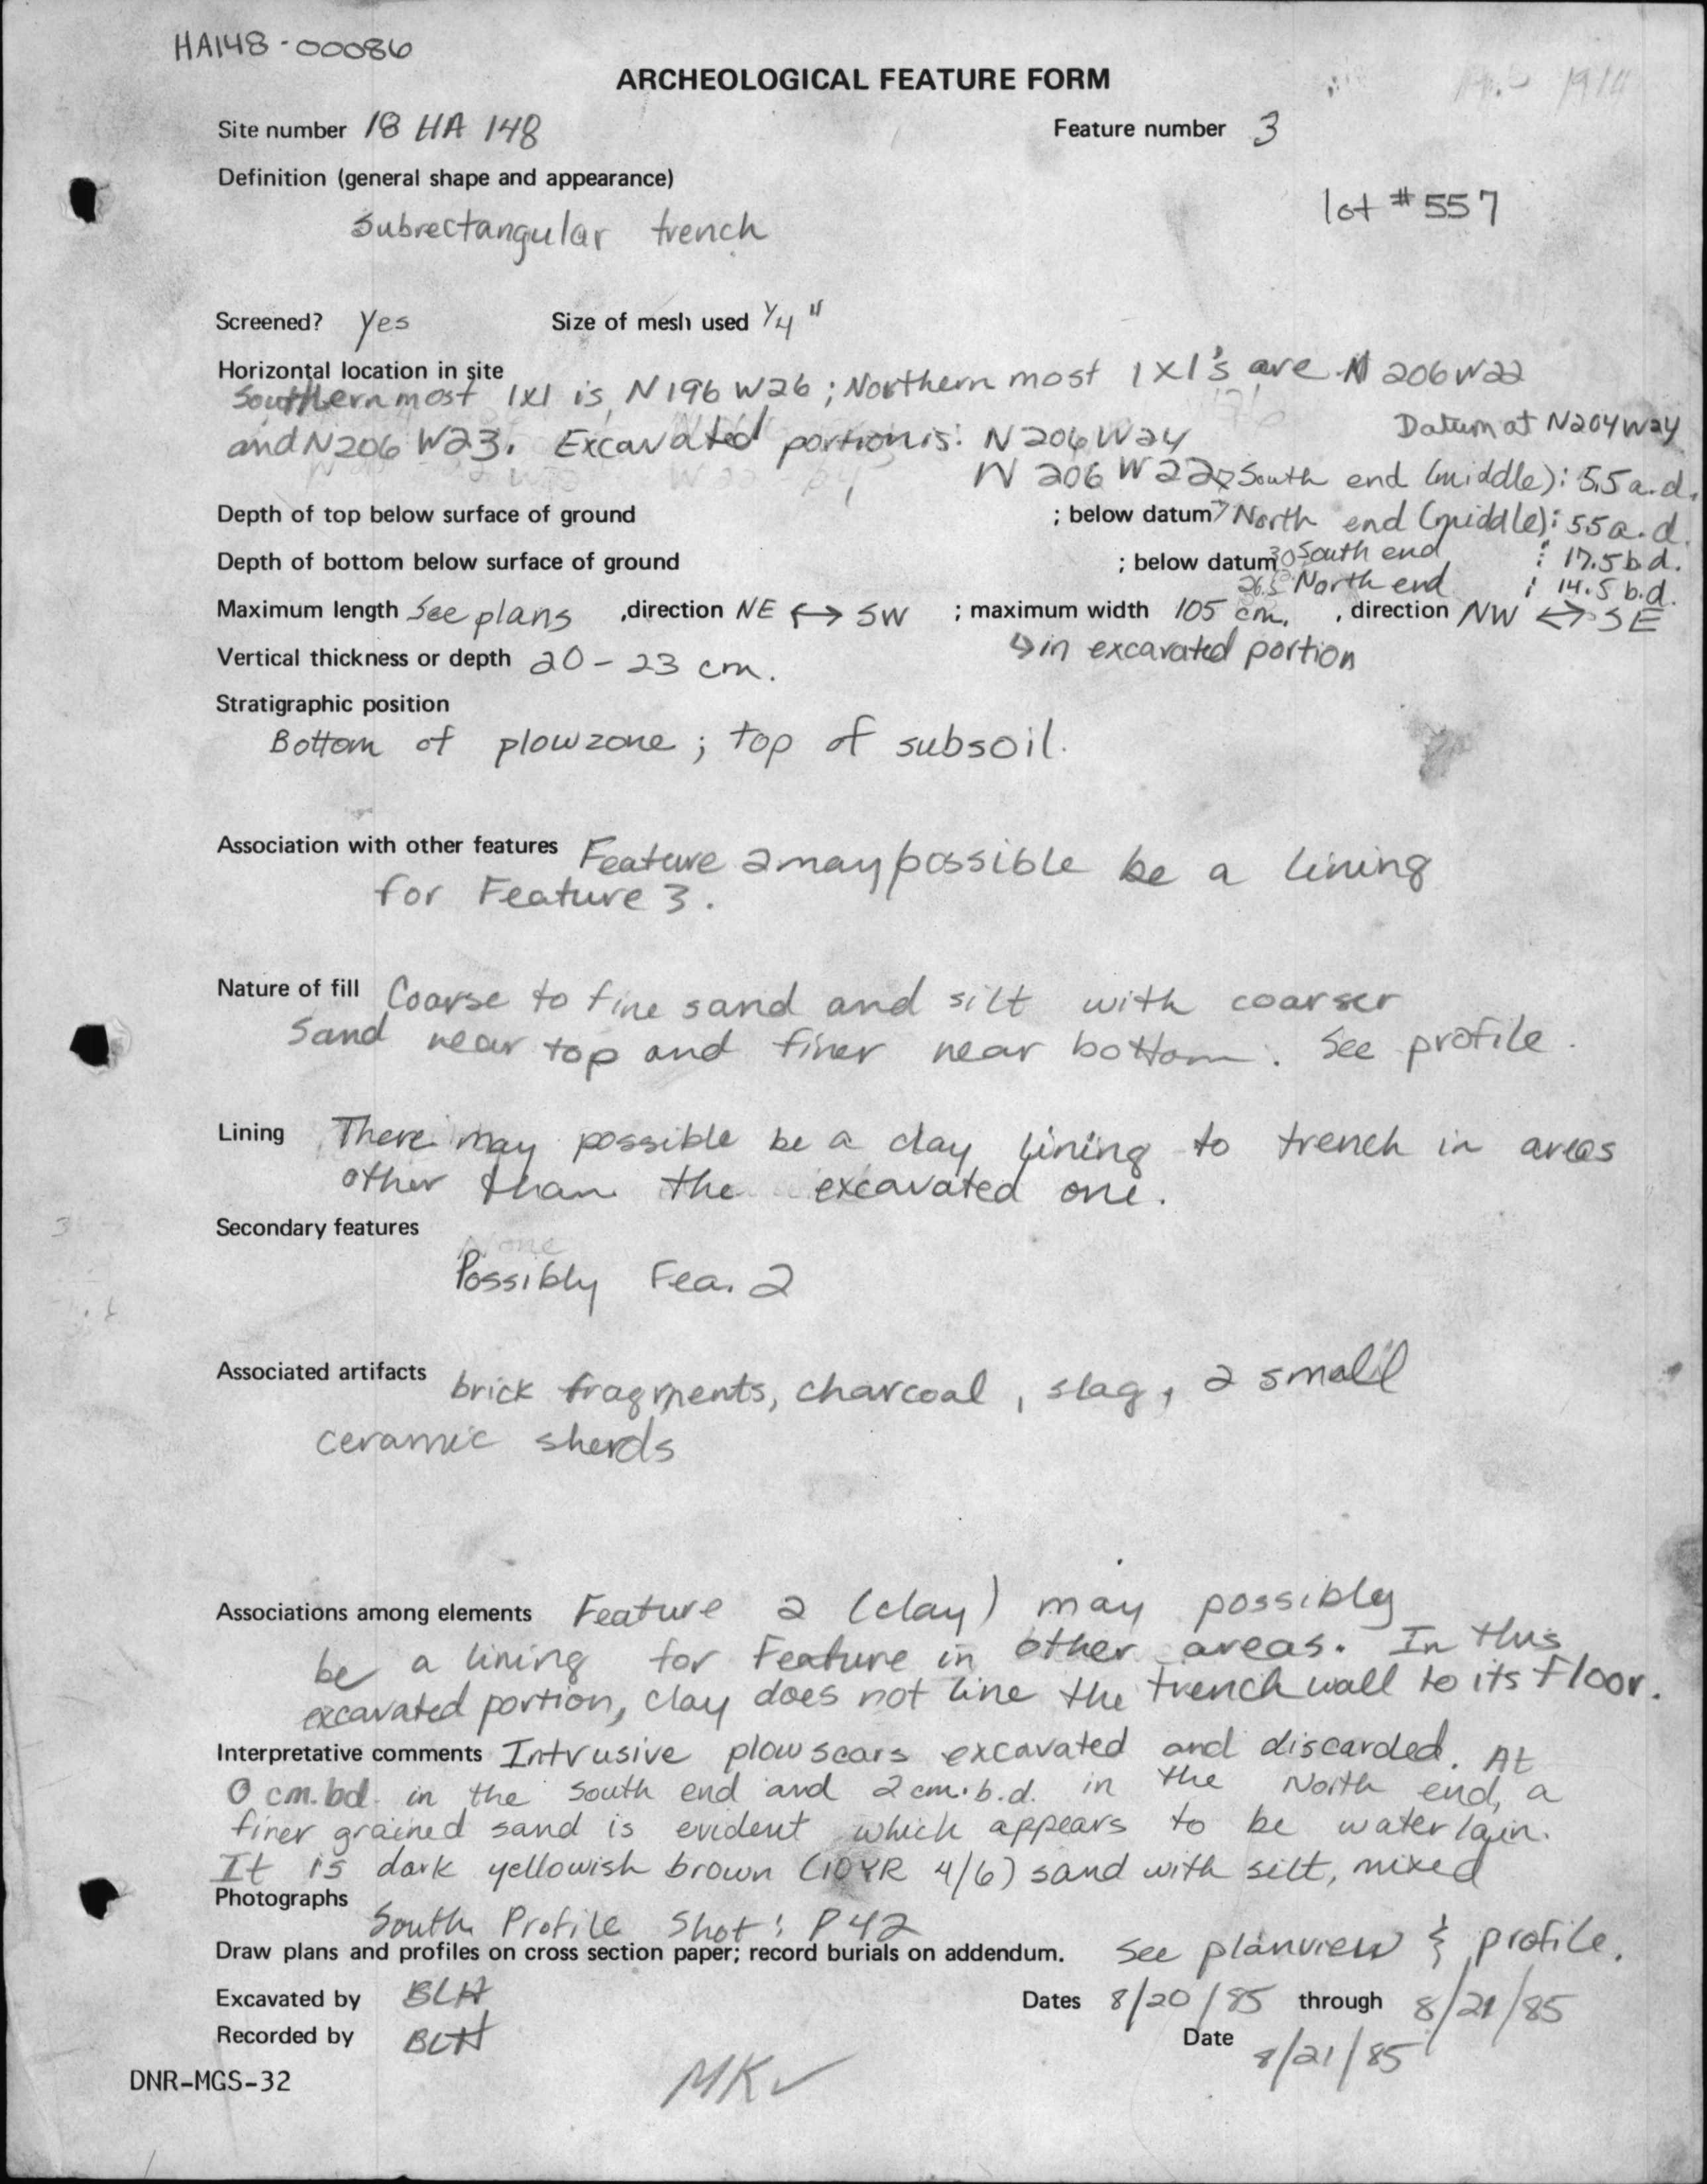 HA148-00086
ARCHEOLOGICAL FEATURE FORM
Site number 18 HA 148 Feature number 3
Definition (general shape and appearance)
lot #557
Subrectangular trench
Screened? yes Size of mesh used 1/4"
Horizontal location in site
Southern most 1x1 is N196 W26; Northern most 1x1's are N 206 W22
Datum at N204W24
and N206 W23. Excavated portion is: N206W24
N 206 W22
South end (middle): 5.5 a.d.
Depth of top below surface of ground ; below datum North end (middle): 5.5 a.d.
Depth of bottom below surface of ground ; below datum South end : 17.5 b.d.
North end : 14.5 b.d.
Maximum length See plans , direction NE ↔ SW ; maximum width 105 cm. , direction NW ↔ SE
↳ in excavated portion
Vertical thickness or depth 20-23 cm.
Stratigraphic position
Bottom of plowzone; top of subsoil.
Association with other features Feature 2 may possible be a lining
for Feature 3.
Nature of fill Coarse to fine sand and silt with coarser
sand near top and finer near bottom. See profile.
Lining There may possible be a clay lining to trench in areas
other than the excavated one.
Secondary features
None
Possibly Fea. 2
Associated artifacts brick fragments, charcoal, slag, 2 small
ceramic sherds
Associations among elements Feature 2 (clay) may possibly
be a lining for Feature in other areas. In this
excavated portion, clay does not line the trench wall to its floor.
Interpretative comments Intrusive plowscars excavated and discarded. At
0 cm.bd. in the South end and 2 cm.b.d. in the North end, a
finer grained sand is evident which appears to be water lain.
It is dark yellowish brown (10YR 4/6) sand with silt, mixed
Photographs
South Profile Shot: P42
Draw plans and profiles on cross section paper; record burials on addendum. See planview & profile.
Excavated by BLH Dates 8/20/85 through 8/21/85
Recorded by BLH Date 8/21/85
DNR-MGS-32
MK✓